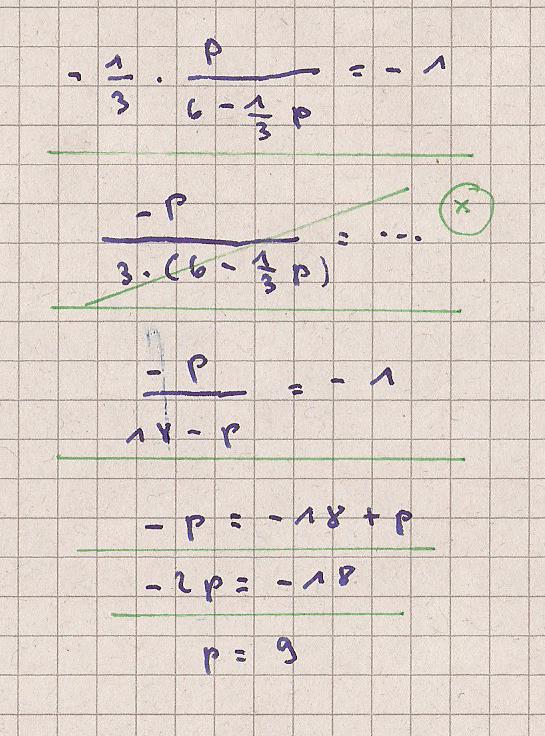 - 1/3 · p/(6 - 1/3 p) = - 1
-p/(3 · (6 - 1/3 p)) = ... x
-p/(18 - p) = - 1
- p = - 18 + p
- 2p = - 18
p = 9